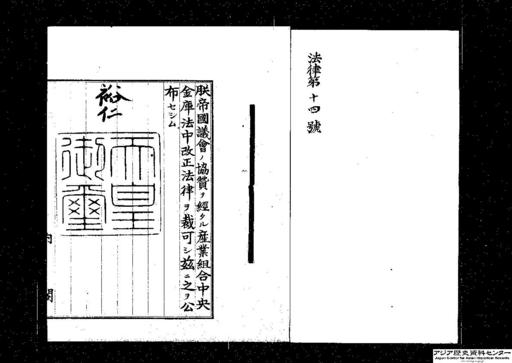 法律第十四號
朕帝國議會ノ協贊ヲ經タル産業組合中央
金庫法中改正法律ヲ裁可シ茲ニ之ヲ公
布セシム
裕仁
天皇
御璽
内閣
アジア歴史資料センター
Japan Center for Asian Historical Records